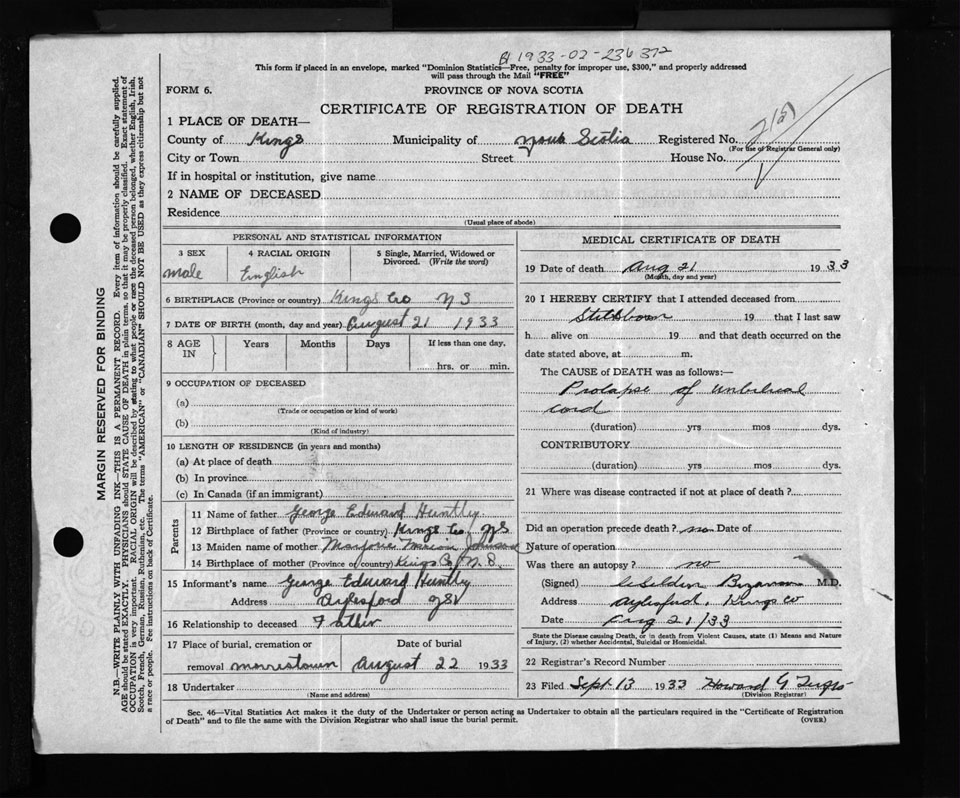 1933-02-236372
This form if placed in an envelope, marked "Dominion Statistics—Free, penalty for improper use, $300," and properly addressed
will pass through the Mail "FREE"
FORM 6. PROVINCE OF NOVA SCOTIA
CERTIFICATE OF REGISTRATION OF DEATH
1 PLACE OF DEATH—
County of Kings Municipality of Nova Scotia Registered No.
(For use of Registrar General only)
City or Town Street House No.
If in hospital or institution, give name
2 NAME OF DECEASED
Residence
(Usual place of abode)
PERSONAL AND STATISTICAL INFORMATION
3 SEX 4 RACIAL ORIGIN 5 Single, Married, Widowed or
Divorced. (Write the word)
male English
6 BIRTHPLACE (Province or country) Kings Co N S
7 DATE OF BIRTH (month, day and year) August 21 1933
8 AGE IN Years Months Days If less than one day,
hrs. or min.
9 OCCUPATION OF DECEASED
(a)
(Trade or occupation or kind of work)
(b)
(Kind of industry)
10 LENGTH OF RESIDENCE (in years and months)
(a) At place of death
(b) In province
(c) In Canada (if an immigrant)
Parents
11 Name of father George Edward Huntly
12 Birthplace of father (Province or country) Kings Co NS
13 Maiden name of mother Marjorie Marion
14 Birthplace of mother (Province or country) Kings Co N.S.
15 Informant's name George Edward Huntly
Address Aylesford
16 Relationship to deceased Father
17 Place of burial, cremation or Date of burial
removal Morristown August 22 1933
18 Undertaker
(Name and address)
MEDICAL CERTIFICATE OF DEATH
19 Date of death Aug 21 1933
(Month, day and year)
20 I HEREBY CERTIFY that I attended deceased from
Stillborn 19 that I last saw
h alive on 19 and that death occurred on the
date stated above, at m.
The CAUSE of DEATH was as follows:—
Prolapse of umbilical
cord
(duration) yrs mos dys.
CONTRIBUTORY
(duration) yrs mos dys.
21 Where was disease contracted if not at place of death?
Did an operation precede death? no Date of
Nature of operation
Was there an autopsy? no
(Signed) M.D.
Address Aylesford, Kings Co
Date Aug 21/33
State the Disease causing Death, or in death from Violent Causes, state (1) Means and Nature
of Injury, (2) whether Accidental, Suicidal or Homicidal.
22 Registrar's Record Number
23 Filed Sept 13 1933 Howard G
(Division Registrar)
Sec. 46—Vital Statistics Act makes it the duty of the Undertaker or person acting as Undertaker to obtain all the particulars required in the "Certificate of Registration
of Death" and to file the same with the Division Registrar who shall issue the burial permit. (OVER)
MARGIN RESERVED FOR BINDING
N.B.—WRITE PLAINLY WITH UNFADING INK—THIS IS A PERMANENT RECORD. Every item of information should be carefully supplied.
AGE should be stated EXACTLY. PHYSICIANS should STATE CAUSE OF DEATH in plain terms, so that it may be properly classified. Exact statement of
OCCUPATION is very important. RACIAL ORIGIN will be described by stating to what people or race the deceased person belonged, whether English, Irish,
Scotch, French, German, Russian, Ruthenian, etc. The terms "AMERICAN" or "CANADIAN" SHOULD NOT BE USED as they express citizenship but not
a race or people. See instructions on back of Certificate.